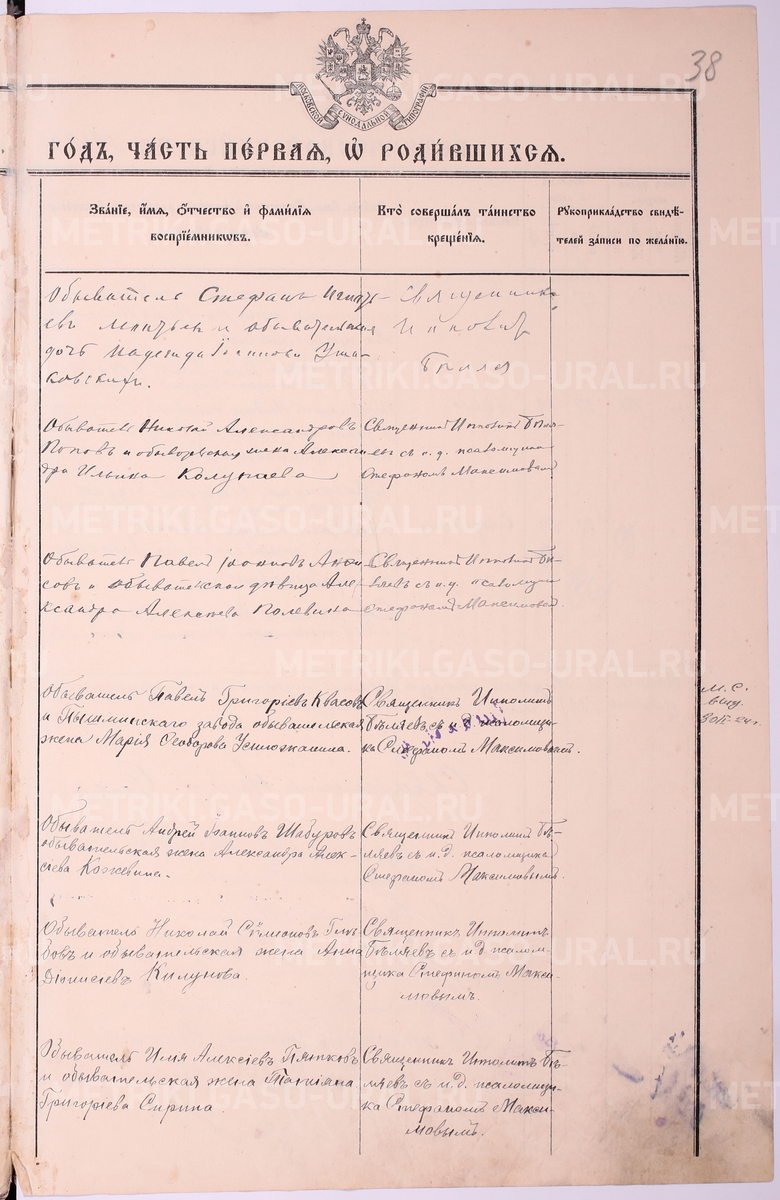 38
МОСКОВСКОЙ СѴНОДАЛЬНОЙ ТИПОГРАФІИ
ГО́ДЪ, ЧА́СТЬ ПЕ́РВАЯ, Ѽ РОДИ́ВШИХСЯ.
Зва́нїе, и́мя, ѻ́тчество и҆ фами́лїѧ
воспрїе́мникѡвъ.
Кто̀ соверша́лъ та́инство
креще́нїѧ.
Рукоприкла́дство свидѣ́-
телей за́писи по жела́нїю.
Обыватель Стефанъ
евъ и обывательская
дочь Надежда Іоаннова Уша-
ковская.
Священникъ
Иполитъ
Обыватель Николай Александровъ
Поповъ и обывательская жена Алексан
дра Ильина
Священникъ Иполитъ Бѣля-
евъ съ и. д. псаломщика
Стефаномъ Максимовымъ
Обыватель Павелъ Іоанновъ
совъ и обывательская дѣвица Але-
ксандра Алексѣева Полевина
Священникъ Иполитъ Бѣ-
ляевъ съ и. д. псаломщика
Стефаномъ Максимовымъ.
Обыватель Павелъ Григоріевъ Квасовъ
и Пышминскаго завода обывательская
жена Марія Ѳеодорова Устюжанина.
Священникъ Иполитъ
Бѣляевъ съ и. д. псаломщи-
ка Стефаномъ Максимовымъ.
М. С.
выд.
Обыватель Андрей Іоанновъ Шабуровъ
обывательская жена Александра Алек-
сіева Кожевина.
Священникъ Иполитъ Бѣ-
ляевъ съ и. д. псаломщика
Стефаномъ Максимовымъ.
Обыватель Николай Сѵмеоновъ Глѣ-
бовъ и обывательская жена Анна
Діонисіевъ Килунова.
Священникъ Иполитъ
Бѣляевъ съ и. д псалом-
щика Стефаномъ Макси-
мовымъ.
Обыватель Илія Алексіевъ Пятковъ
и обывательская жена Татіана
Григоріева Сирина.
Священникъ Иполитъ Бѣ-
ляевъ съ и. д. псаломщи-
ка Стефаномъ Макси-
мовымъ.
METRIKI.GASO-URAL.RU